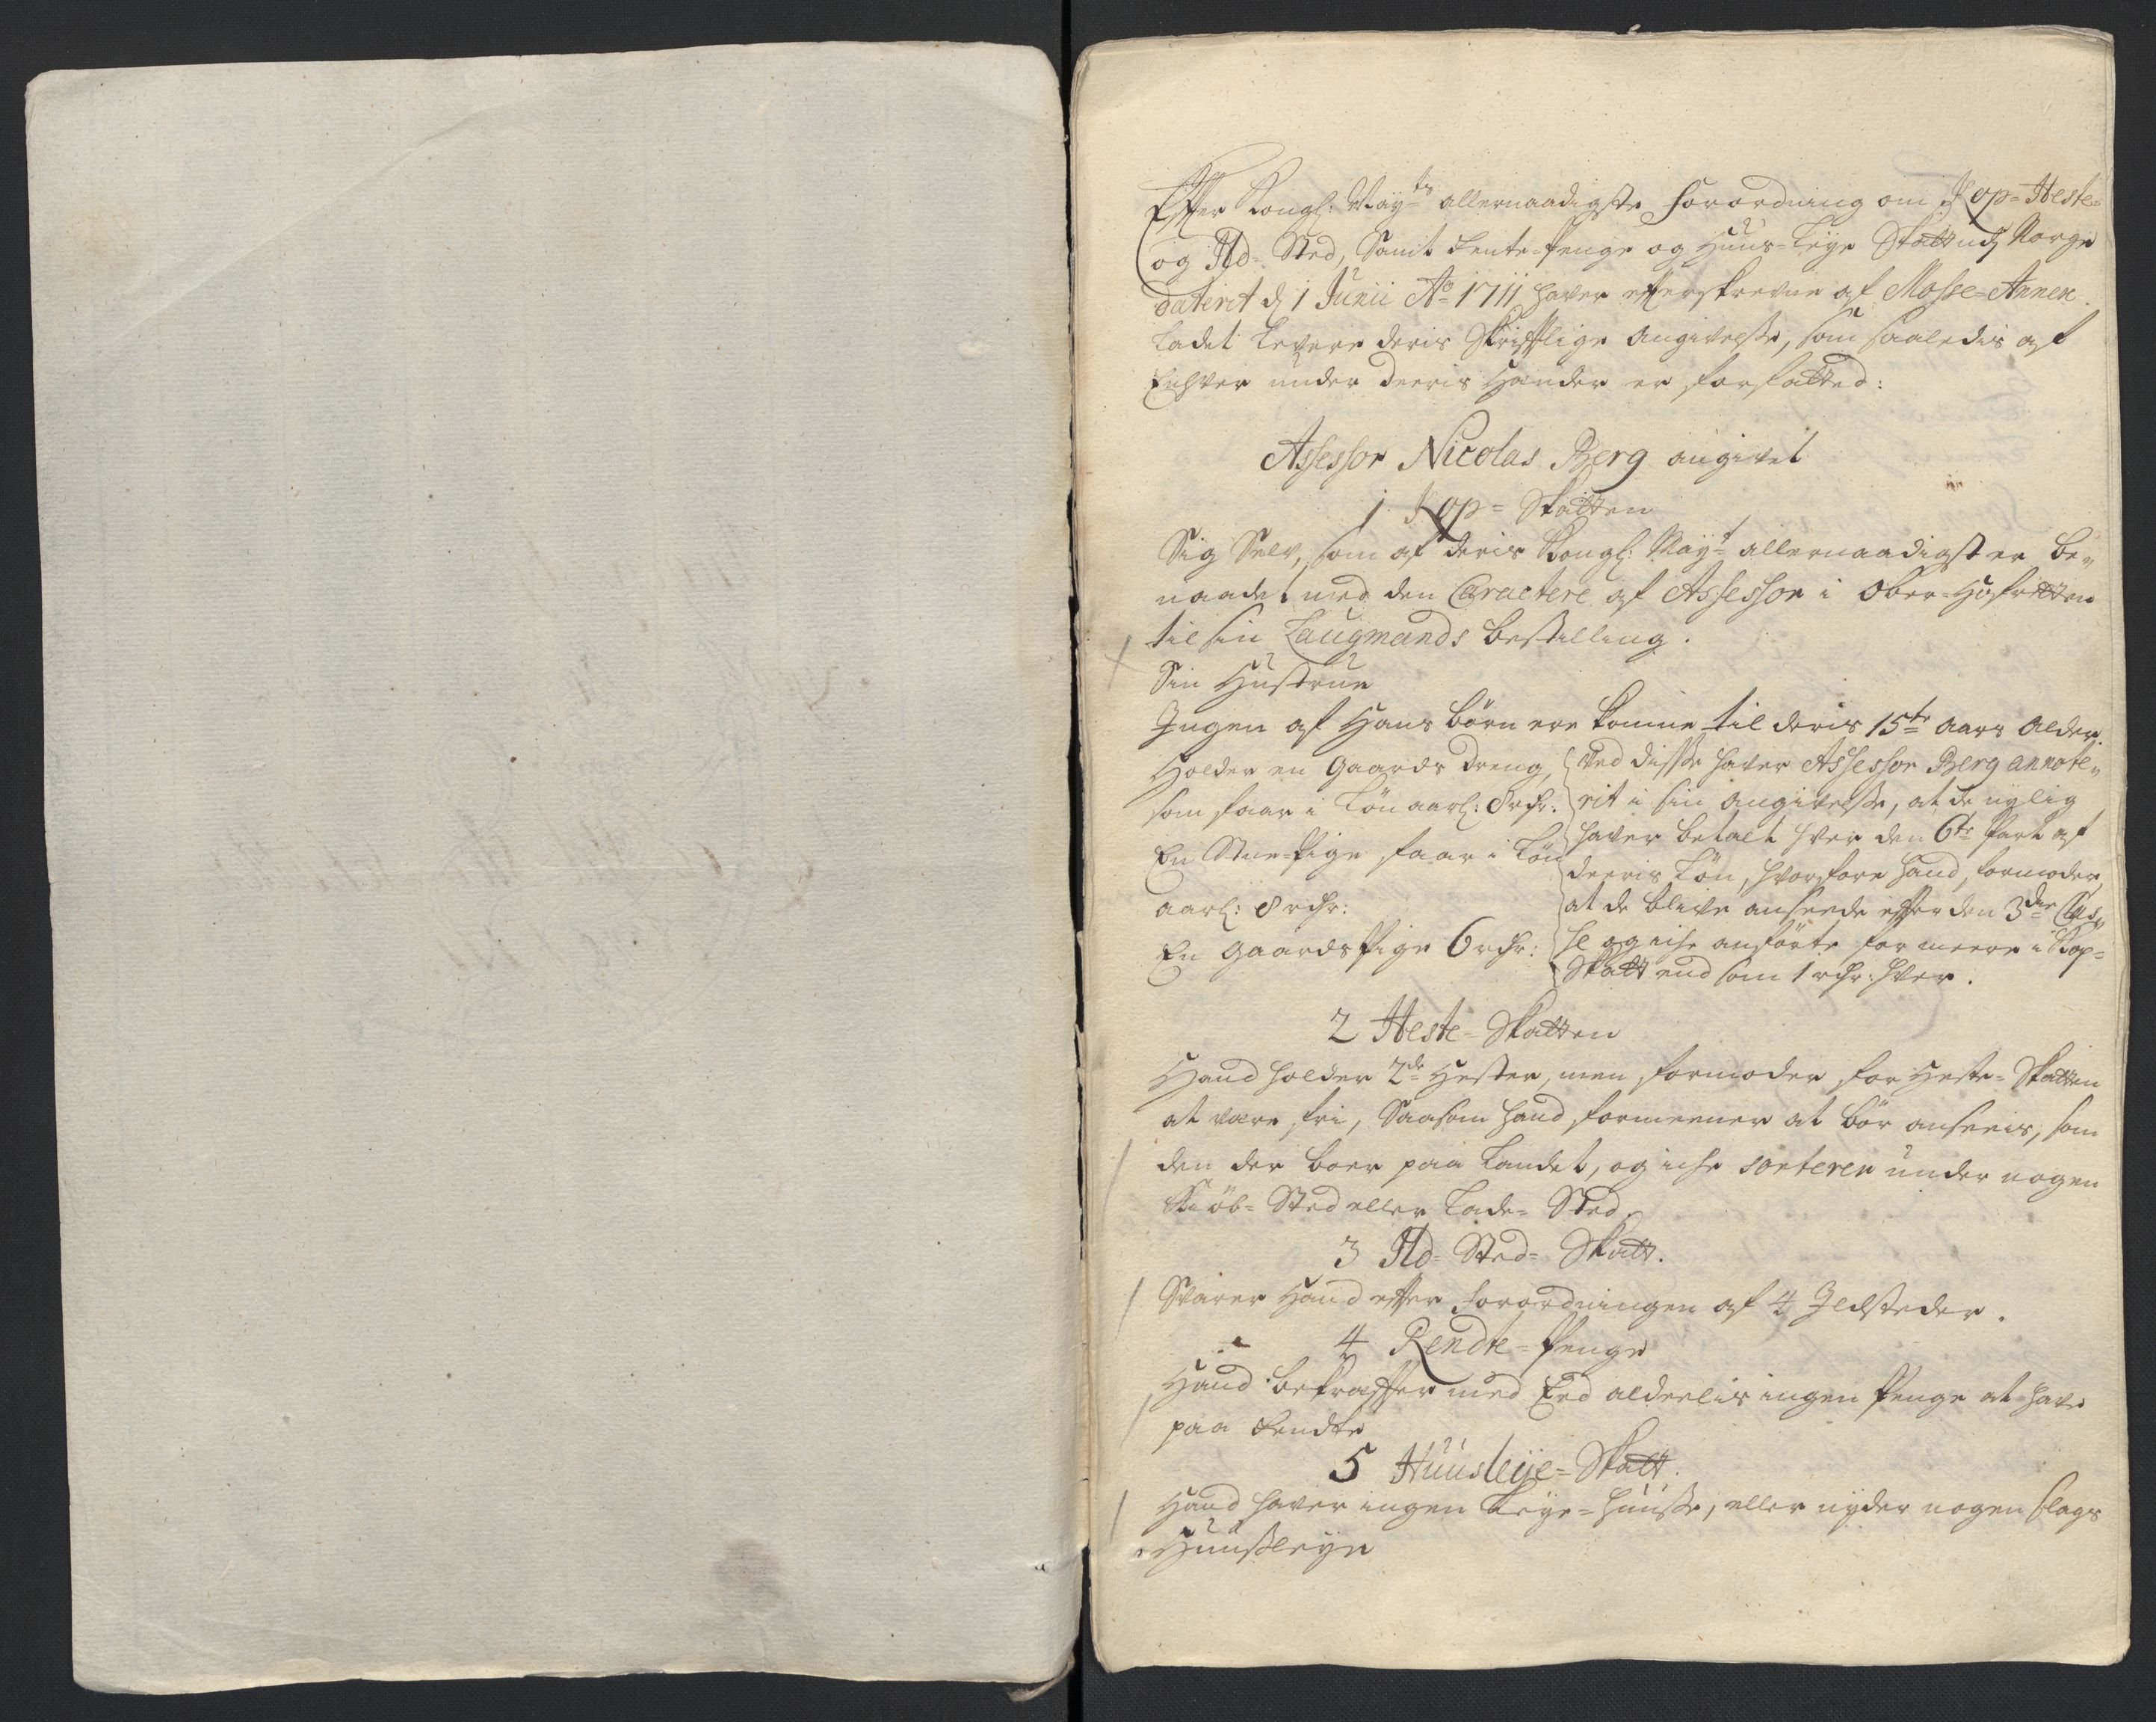 Efter Kongl: May:ts allernaadigste Forordning om Kop-Heste-
og Ild-Sted, Samt Rente-Penge og Huus-Leye Skatt udj Norge
dateret d: 1 Junii Ao 1711 haver efterskrevne af Mosse-Annex
Ladet Levere deris Skriftlige Angivelsse, som saaledis af
Enhver under deeris Hænder er forfatted:
Assessor Nicolas Berg angivet
1 Kop-Skatten
Sig Selv, som af deris Kongl: May:t allernaadigst er be-
naadet med den Caractere af Assessor i Ober-Hofretten
til sin Laugmands bestilling.
Sin Hustrue
Ingen af Hans børn ere komne til deris 15te Aars Alder.
Holder en Gaards Dreng,
som faar i Løn aarl: 8 rdr.
En Stue-Pige faar i Løn
aarl: 8 rdr:
En Gaards Pige 6 rdr:
Ved disse haver Assessor Berg annote-
rit i sin Angivelsse, at de nylig
haver betalt hver den 6te Part af
deeris Løn, hvorfore hand formoder,
at de blive anseede efter den 3die Clas-
se og iche anførte for meere i Kop-
Skatt end som 1 rdr: hver.
2 Heste-Skatten
Hand holder 2de Hester, men formoder for Heste-Skatten
at være fri, Saasom hand formeener at bør anseeis, som
den der boer paa Landet, og iche sorterer under nogen
Kiøb-Sted eller Lade-Sted.
3 Ild-Sted-Skatt.
Svarer Hand efter Forordningen af 4 Ildsteder.
4 Rendte-Penge
Hand bekræffter med Eed alderlis ingen Penge at have
paa Rendte
5 Huusleije-Skatt.
Hand haver ingen Leye-Huusse, eller nyder nogen slags
Huusleye